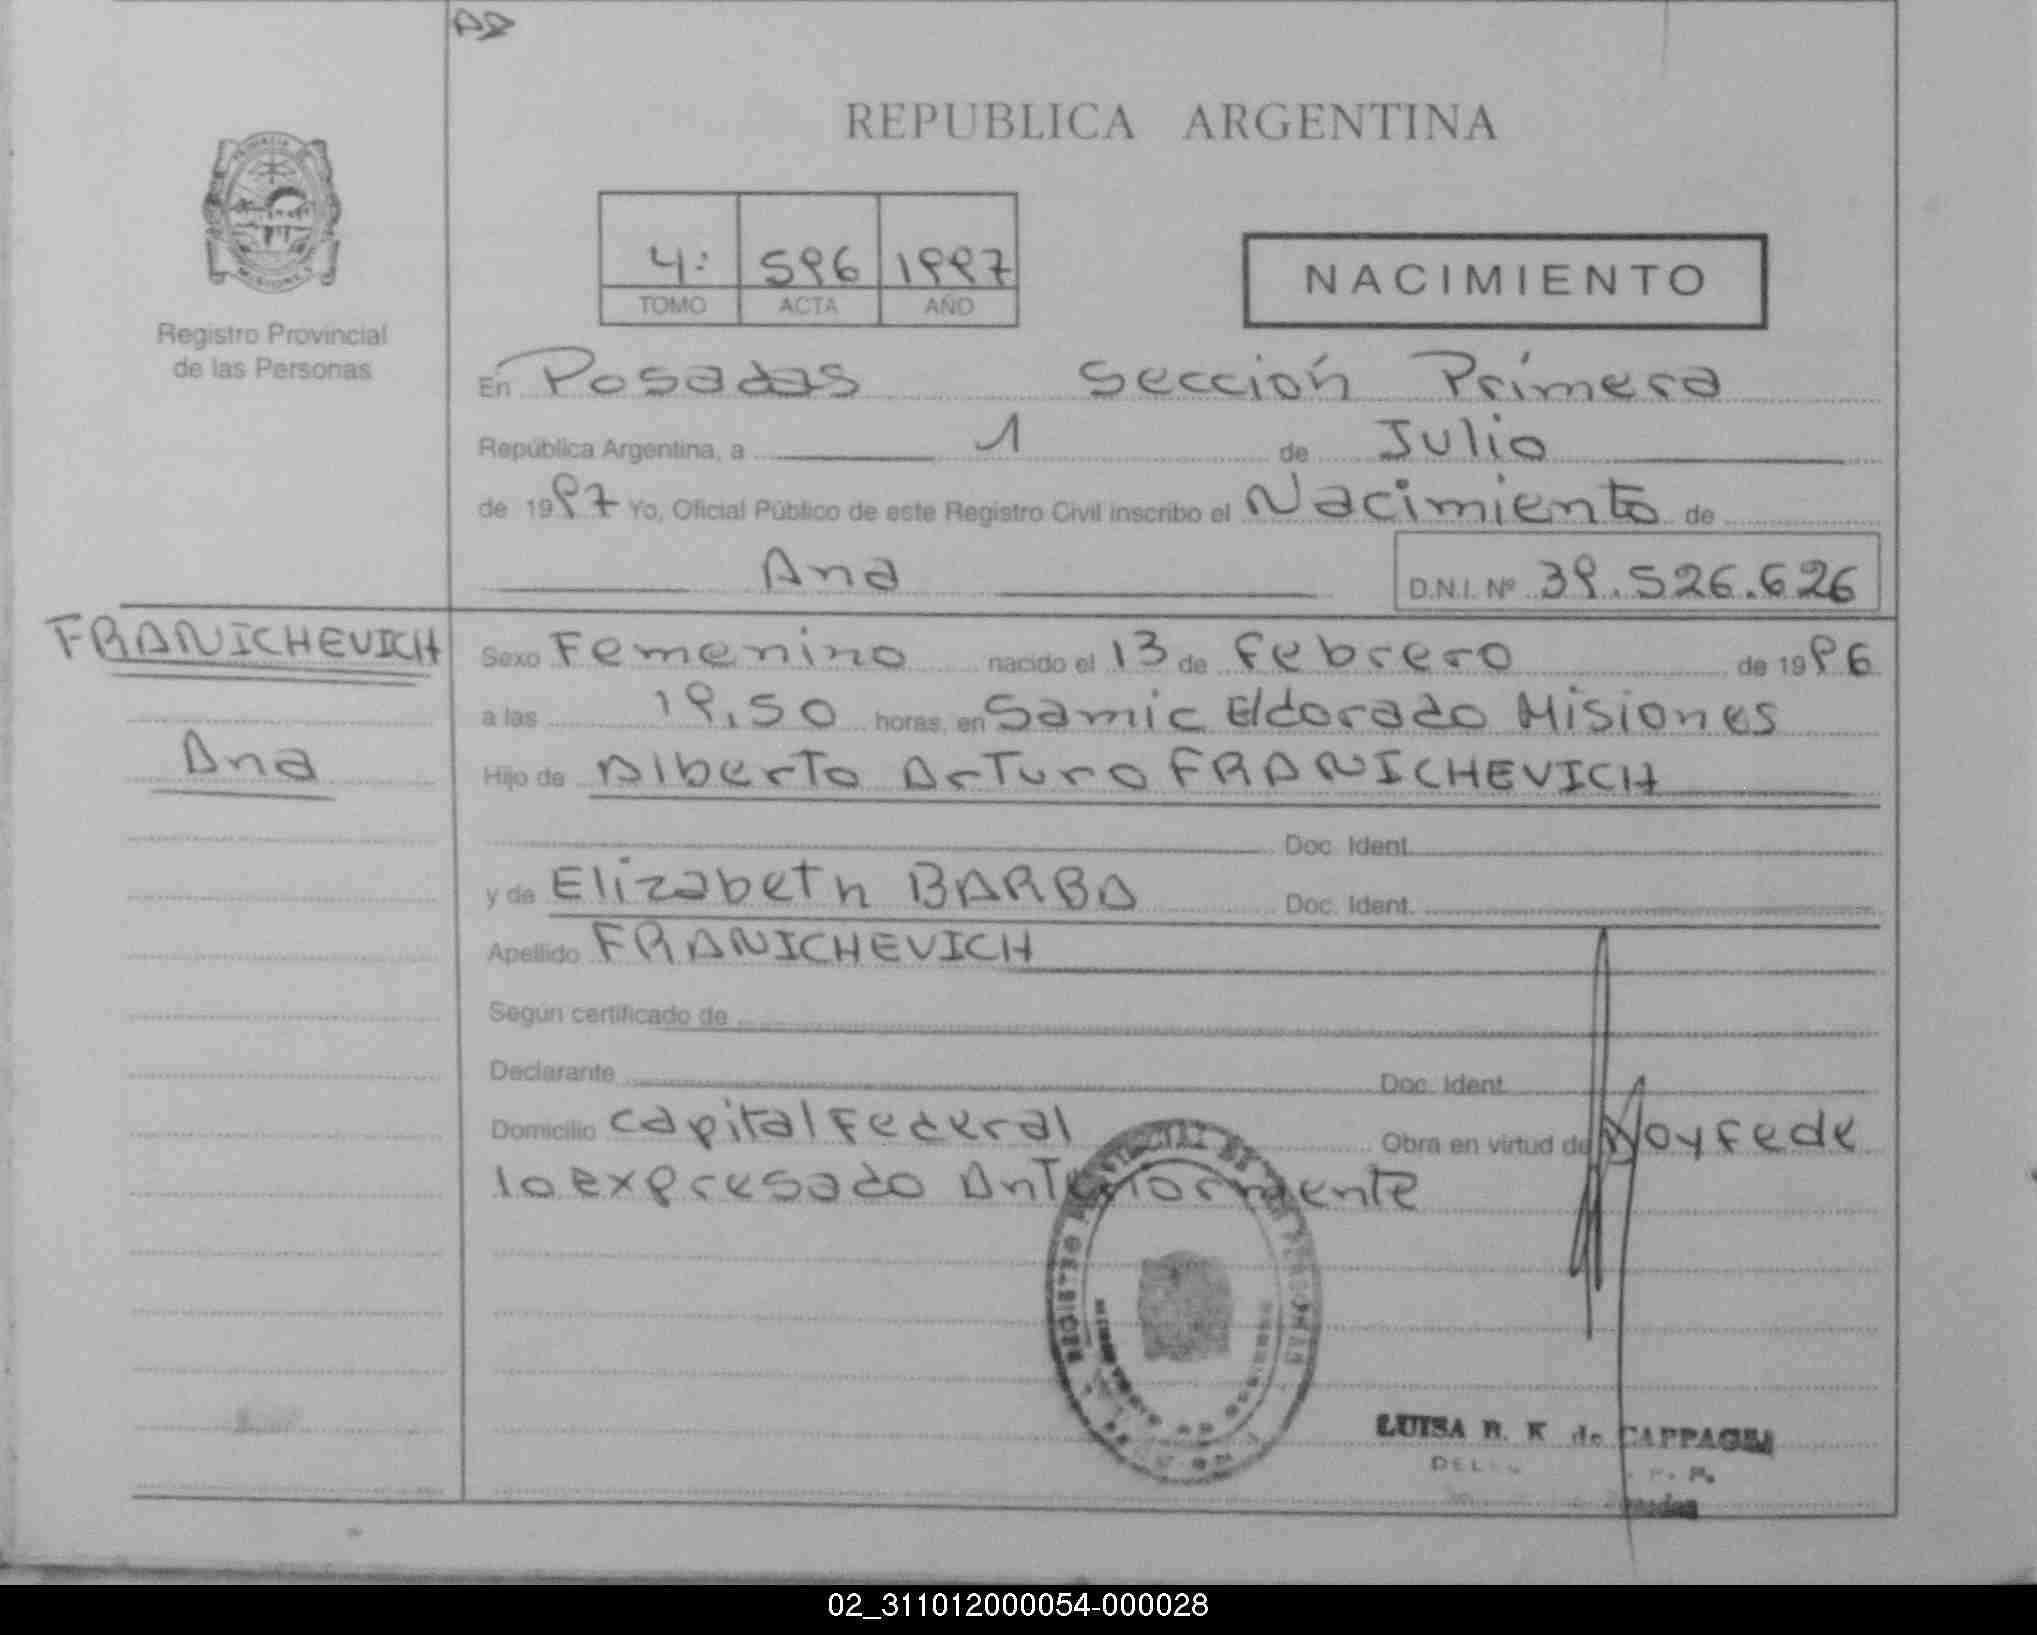 REPUBLICA ARGENTINA
4: 596 1997
TOMO ACTA AÑO
NACIMIENTO
Registro Provincial
de las Personas
En Posadas Sección Primera
República Argentina, a 1 de Julio
de 1997 Yo, Oficial Público de este Registro Civil inscribo el Nacimiento de
Ana D.N.I. Nº 39.526.626
FRANICHEVICH
Ana
Sexo Femenino nacido el 13 de febrero de 1996
a las 19,50 horas, en Samic Eldorado Misiones
Hijo de Alberto Arturo FRANICHEVICH
Doc. Ident.
y de Elizabeth BARBA Doc. Ident.
Apellido FRANICHEVICH
Según certificado de
Declarante Doc. Ident.
Domicilio Capital Federal Obra en virtud de Doy fe de
lo expresado Anteriormente
REGISTRO PROVINCIAL DE LAS PERSONAS
LUISA R. K de
02_311012000054-000028